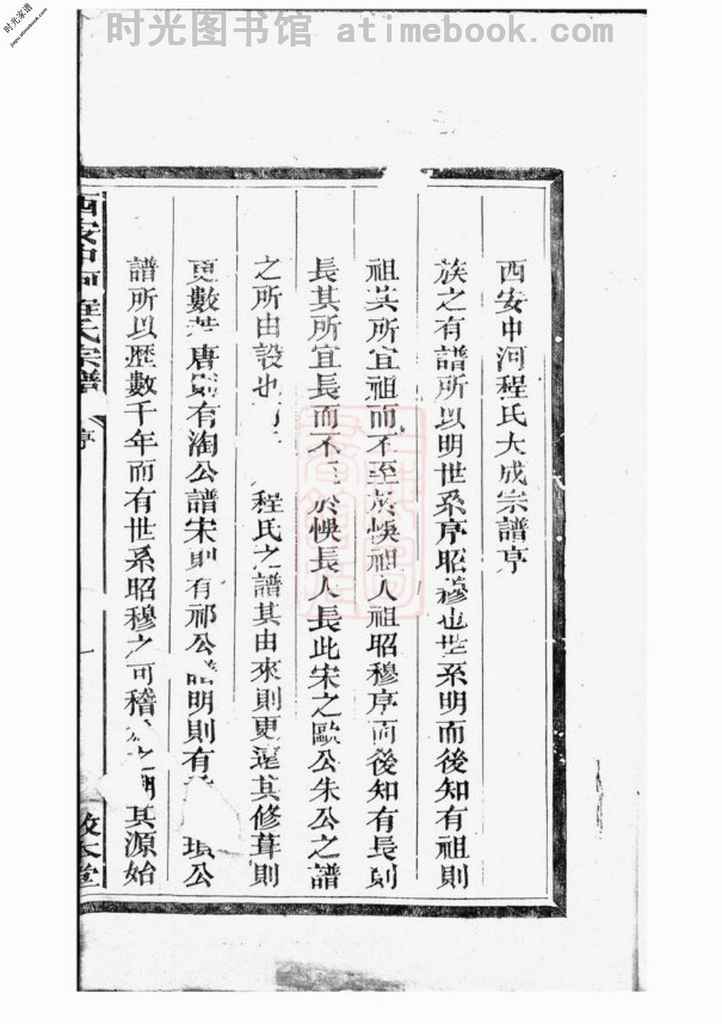 时光图书馆 atimebook.com
时光家谱
jiapu.atimebook.com
西安中河程氏大成宗譜序
族之有譜所以明世系序昭穆也世系明而後知有祖則
祖其所宜祖而不至於悞祖人祖昭穆序而後知有長則
長其所宜長而不至於悞長人長此宋之歐公朱公之譜
之所由設也 程氏之譜其由來則更遠其修葺則
更數 唐則有淘公譜宋則有祁公譜明則有 公
譜所以歷數千年而有世系昭穆之可稽 其源始
西安中河程氏宗譜 序 一 敦本堂